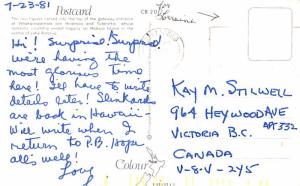 7-23-81
Postcard
The two figures carved into the top of the gateway entrance
of Whakarewarewa are Hinemoa and Tutanekai, whose
romantic courtship ended happily on Mokoia Island in the
centre of Lake Rotorua.
Hi! Surprise! Surprise!
We're having the
most glorious time
here! I'll have to write
details later! Slinkards
are back in Hawaii-
Will write when I
return to P.B. Hope
all's well!
Love
CB 20
Kay M. Stilwell
964 Heywood Ave
APT 332
Victoria B.C.
Canada
V-8-V-2Y5
Colour